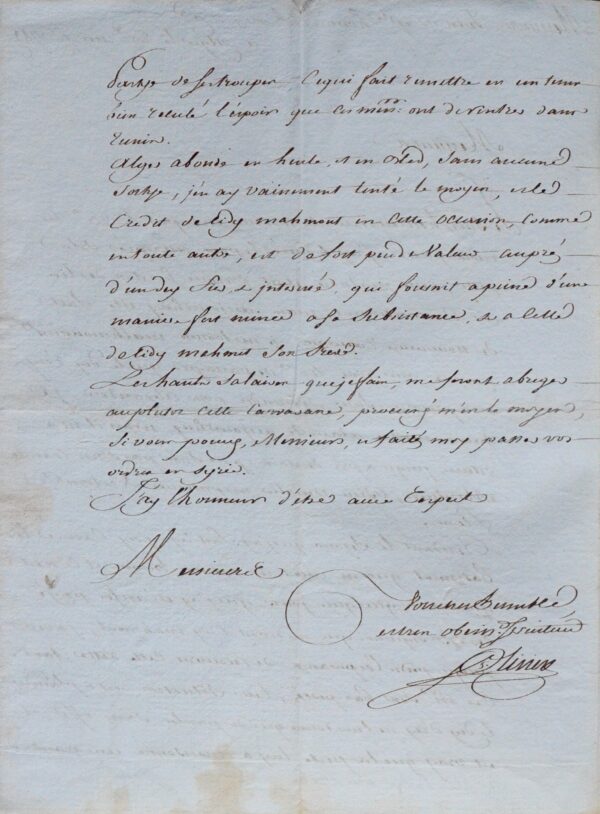 Partye de ses trouppes. Ce qui fait remettre en un tems
bien reculé l'espoir que ces m.rs ont de rentrer dans
Tunis.
Alger abonde en huile, et en bled, sans aucune
sortye, j'en ay vainement tenté le moyen, et le
Credit de Sidy mahmout en cette occasion, comme
en toute autre, est de fort peu de Valeur auprés
d'un dey fier & interessé, qui fournit a peine d'une
maniere fort mince a sa subsistance, & a celle
de Sidy mahmet son frere.
Les hauts salaires que je fais, me feront abreger
au plutot cette Carravane, procurés m'en le moyen,
si vous pouvez, Messieurs, et faites moy passer vos
ordres en Syrie.
J'ay l'honneur d'être avec Respect
Messieurs
Votre tres humble,
et tres obeiss.t serviteur